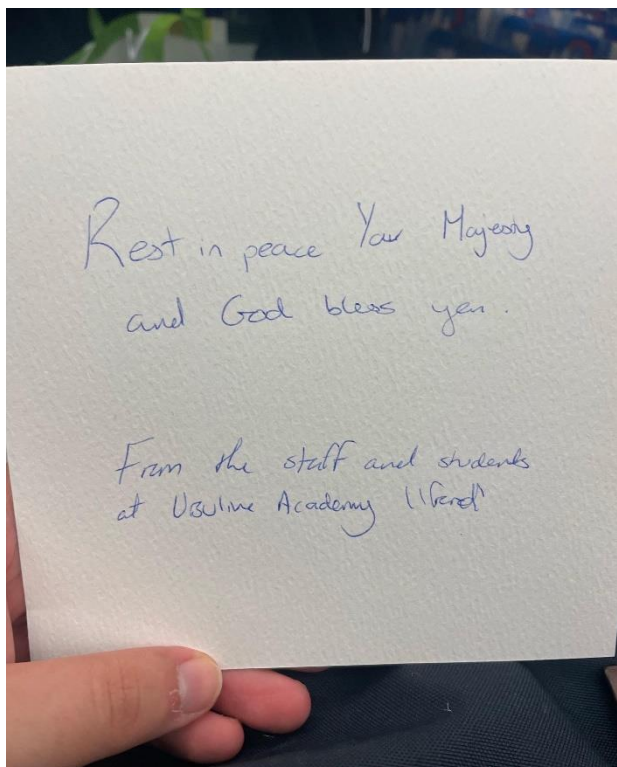 Rest in peace Your Majesty
and God bless you.
From the staff and students
at Ursuline Academy Ilford